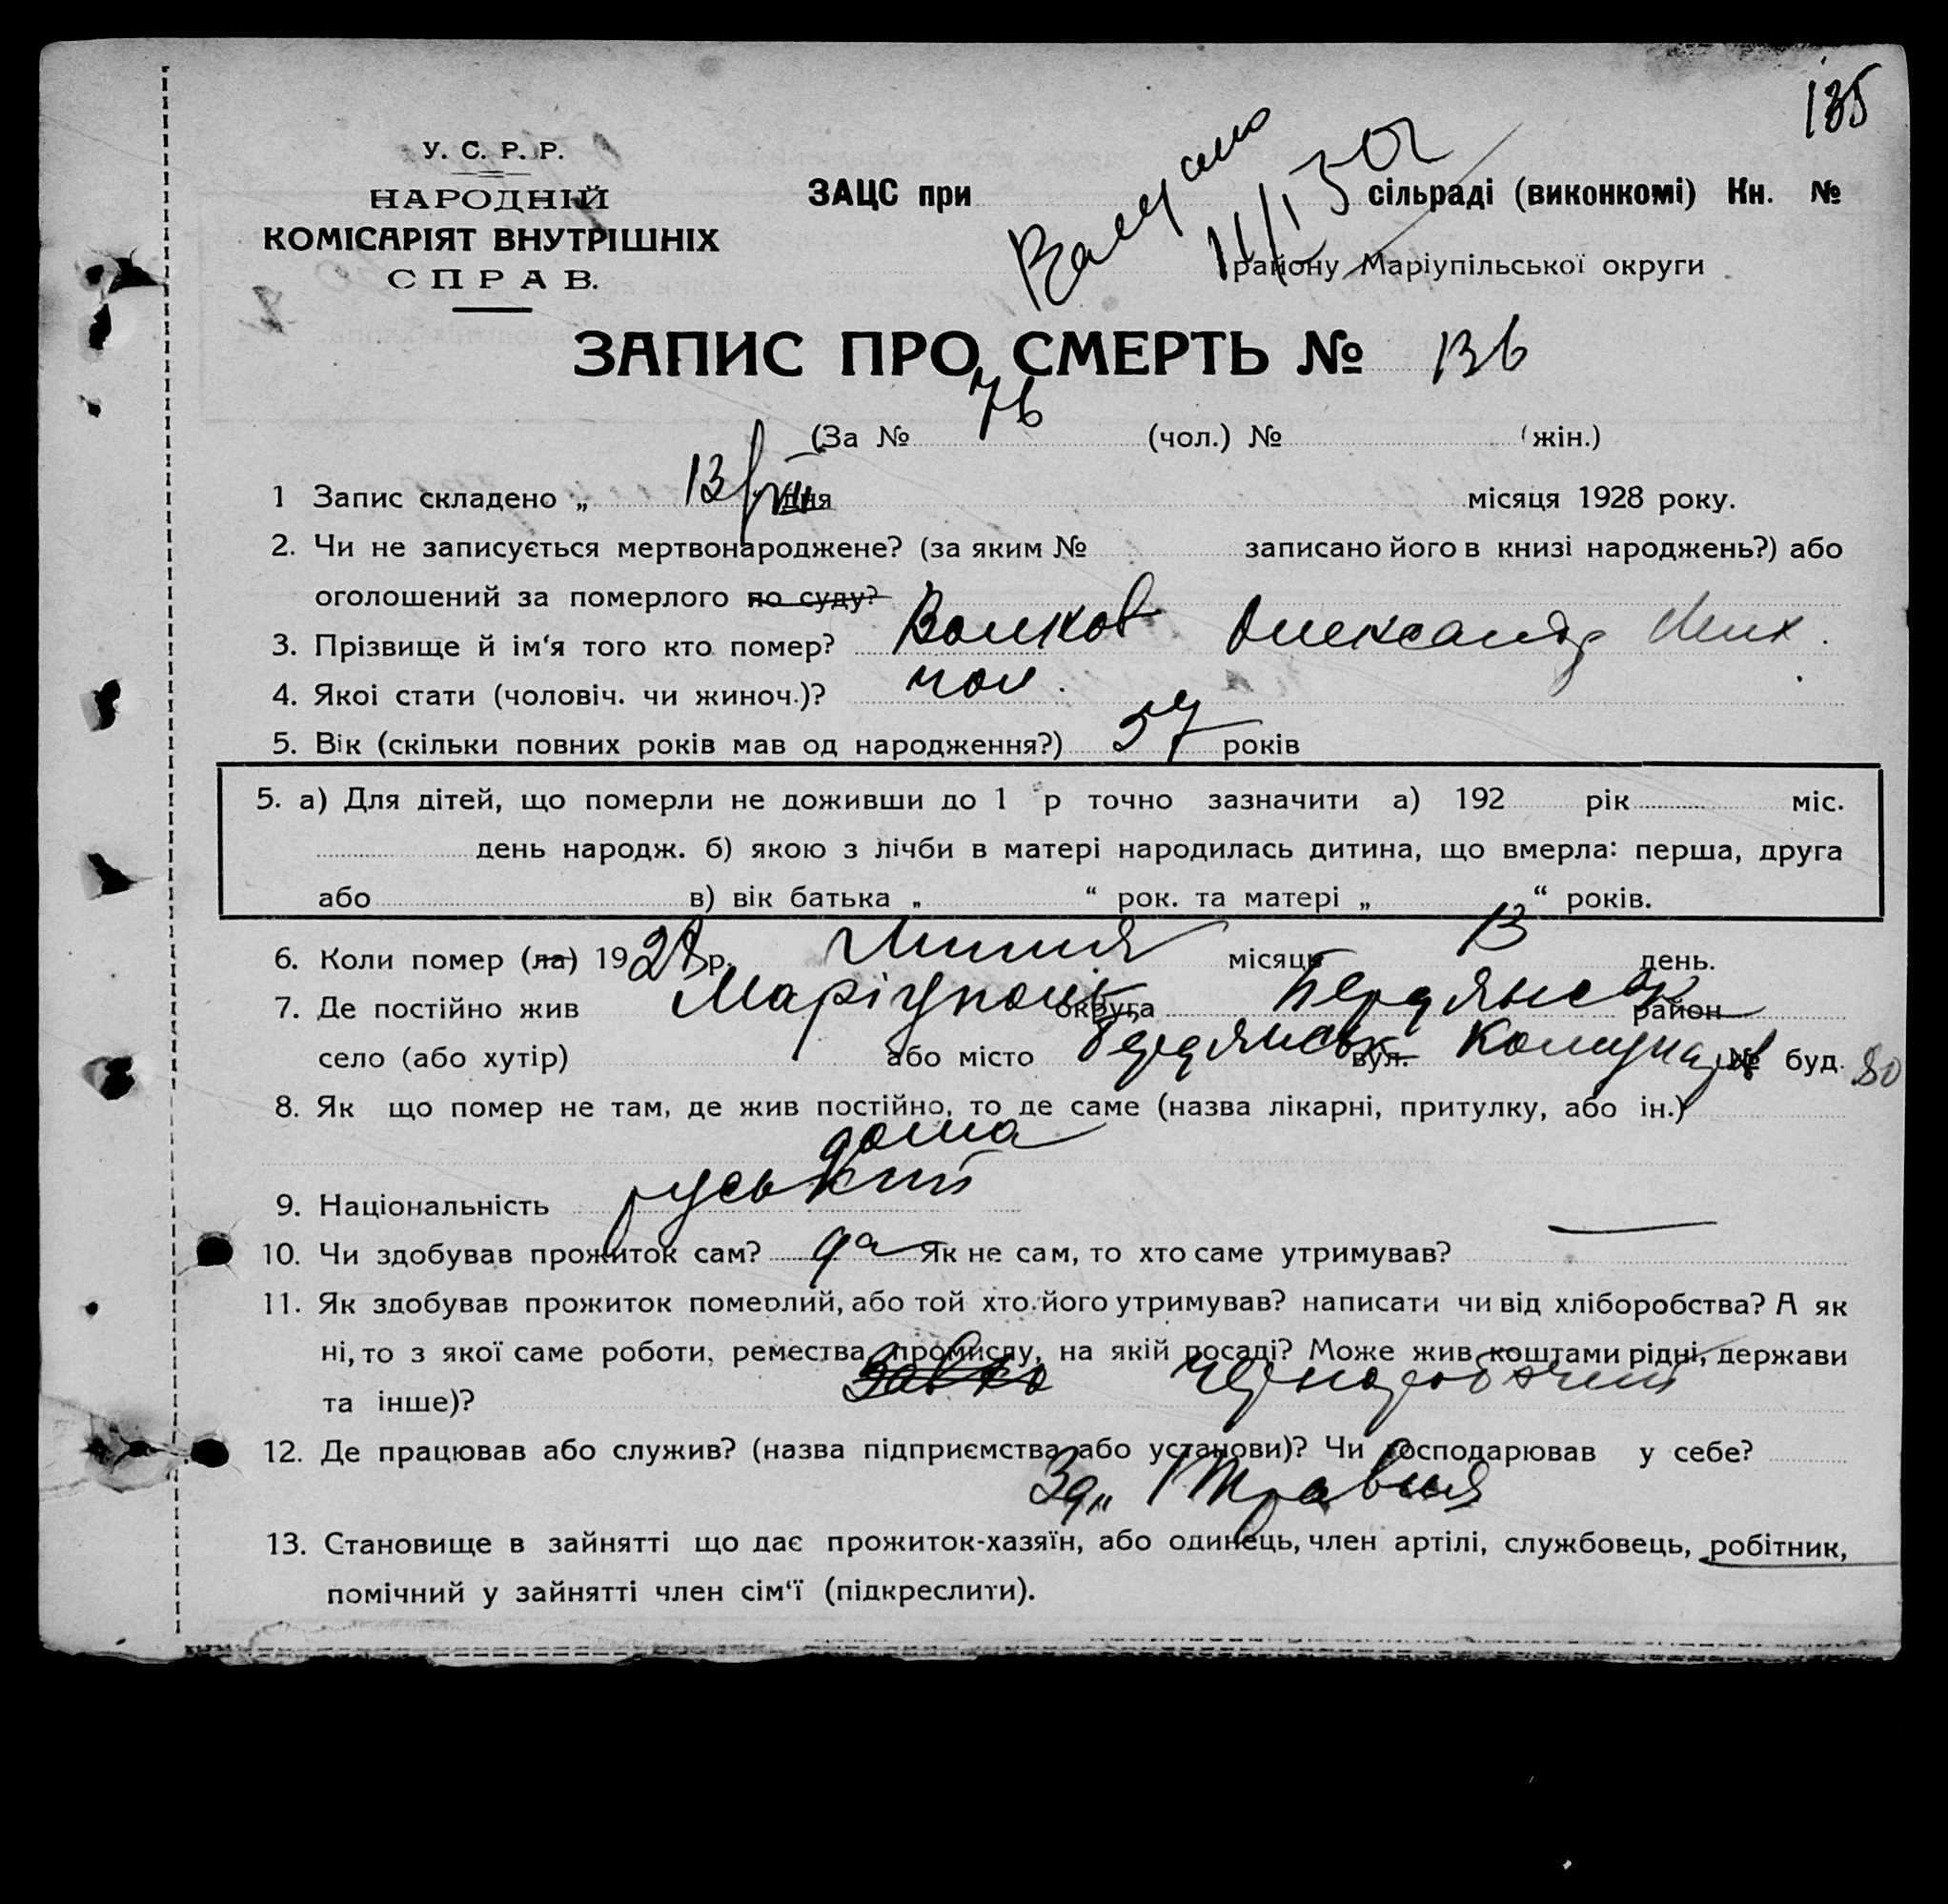 135
У. С. Р. Р.
НАРОДНІЙ
КОМІСАРІЯТ ВНУТРІШНІХ
СПРАВ.
ЗАЦС при сільраді (виконкомі) Кн. №
району Маріупільської округи
ЗАПИС ПРО СМЕРТЬ № 136
(За № 76 (чол.) № (жін.)
1 Запис складено „ 13/VII дня місяця 1928 року.
2. Чи не записується мертвонароджене? (за яким № записано його в книзі народжень?) або
оголошений за померлого по суду?
3. Прізвище й ім‘я того кто помер? Волков Олександр Мих.
4. Якоі стати (чоловіч. чи жиноч.)? чол.
5. Вік (скільки повних років мав од народження?) 57 років
5. а) Для дітей, що померли не доживши до 1 р точно зазначити а) 192 рік міс.
день народж. б) якою з лічби в матері народилась дитина, що вмерла: перша, друга
або в) вік батька „ “ рок. та матері „ “ років.
6. Коли помер (ла) 1928 р. Липня місяця 13 день.
7. Де постійно жив Маріупольськ округа Бердянськ район
село (або хутір) або місто Бердянськ вул. Комунарів № буд. 80
8. Як що помер не там, де жив постійно, то де саме (назва лікарні, притулку, або ін.)
дома
9. Національність руський
10. Чи здобував прожиток сам? да Як не сам, то хто саме утримував? —
11. Як здобував прожиток померлий, або той хто його утримував? написати чи від хліборобства? А як
ні, то з якої саме роботи, ремества, промислу, на якій посаді? Може жив коштами рідні, держави
та інше)? чорноробочий
12. Де працював або служив? (назва підприємства або установи)? Чи господарював у себе?
Зд. 1 Травня
13. Становище в зайнятті що дає прожиток-хазяїн, або одинець, член артілі, службовець, робітник,
помічний у зайнятті член сім‘ї (підкреслити).